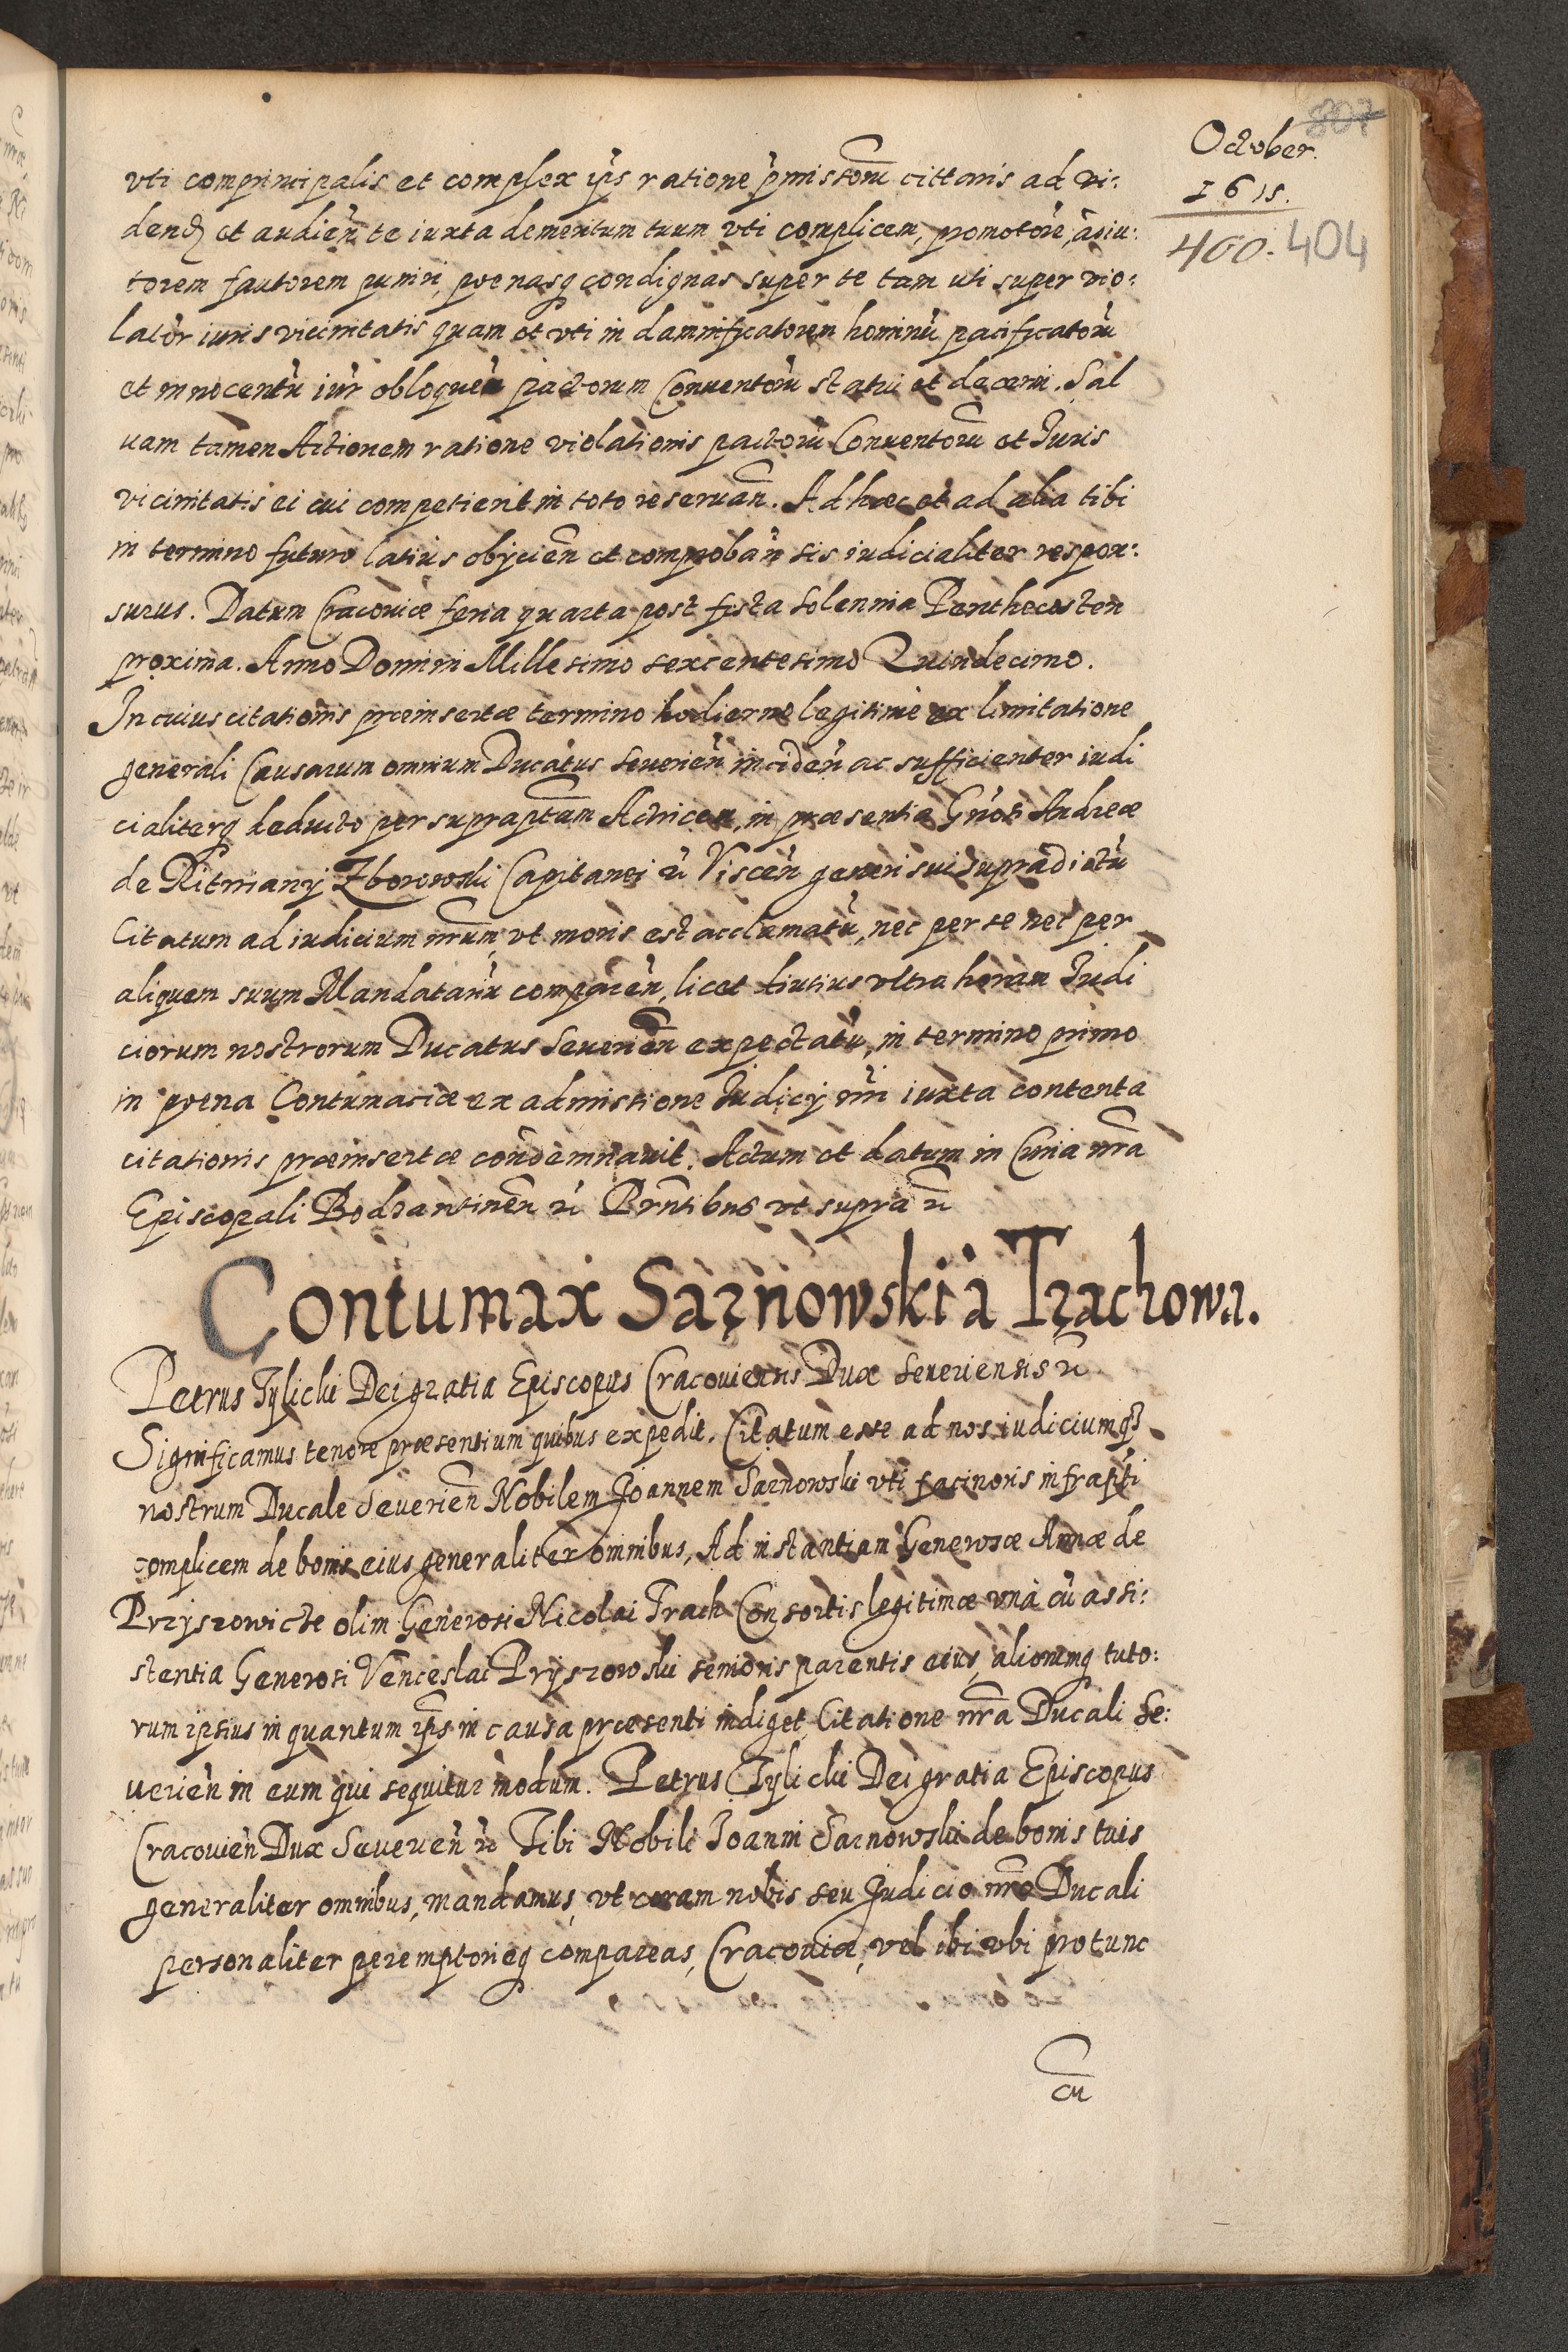 807
October.
1615.
400. 404
vti comprincipalis et complex ips ratione pmissorū cittaris ad vi:
dend et audień te iuxta demeritum tuum vti complicem, promotorē, adiu:
torem fautorem puniri, poenasq condignas super te tam uti super vio:
lator iuris vicinitatis quam et vti in damnificatorem hominū pacificatorū
et innocentū iur obloquen pactorum Conventorū statui et decerni. Sal
uam tamen Actionem ratione violationis pactorū Conuentorū et Iuris
vicinitatis ei cui competierit in toto reseruań. Ad haec et ad alia tibi
in termino futuro latius obijcień et comprobań sis iudicialiter respon:
surus. Datum Cracoviæ feria quarta post festa solennia Penthecosten
proxima. Anno Domini Millesimo sexcentesimo Quindecimo.
In cuius citationis præinsertæ termino hodierno legitime ex limitatione
generali Causarum omnium Ducatus Seuerień inciden ac sufficienter iudi
cialiterq deducto per supraptam Actricem, in præsentia Gnosi Andreæ
de Ritwiany Zborowski Capitanei &c Viscen generi sui supradictū
Citatum ad iudicium nrum, vt moris est acclamatū, nec per se nec per
aliquem suum Mandatariū comparen, licet diutius vltra horam Iudi
ciorum nostrorum Ducatus Seuerień expectatū, in termino primo
in poena Contumaciæ ex admissione Iudicij nri iuxta contenta
citationis præinsertæ condemnauit. Actum et datum in Curia nra
Episcopali Bodzantinen &c Prntibus vt supra &c
Contumax Sarnowski a Trachowa.
Petrus Tylicki Dei gratia Episcopus Cracouiensis Dux Seueriensis &c
Significamus tenore præsentium quibus expedit. Citatum esse ad nos iudiciumq
nostrum Ducale Seuerień Nobilem Joannem Sarnowski vti facinoris infrapti
complicem de bonis eius generaliter omnibus, Ad instantiam Generosæ Annæ de
Przyszowicze olim Generosi Nicolai Trach Consortis legitimæ vnà cū assi:
stentia Generosi Venceslai Pryszowski senioris parentis eius, aliorumq tuto:
rum ipsius in quantum ips in causa præsenti indiget Citatione nra Ducali Se:
uerien in eum qui sequitur modum. Petrus Tylicki Dei gratia Episcopus
Cracouień Dux Seuerień &c Tibi Nobili Joanni Sarnowski de bonis tuis
generaliter omnibus, mandamus, vt coram nobis seu Judicio nro Ducali
personaliter peremptorieq compareas, Cracouiæ, vel ibi vbi protunc
cū